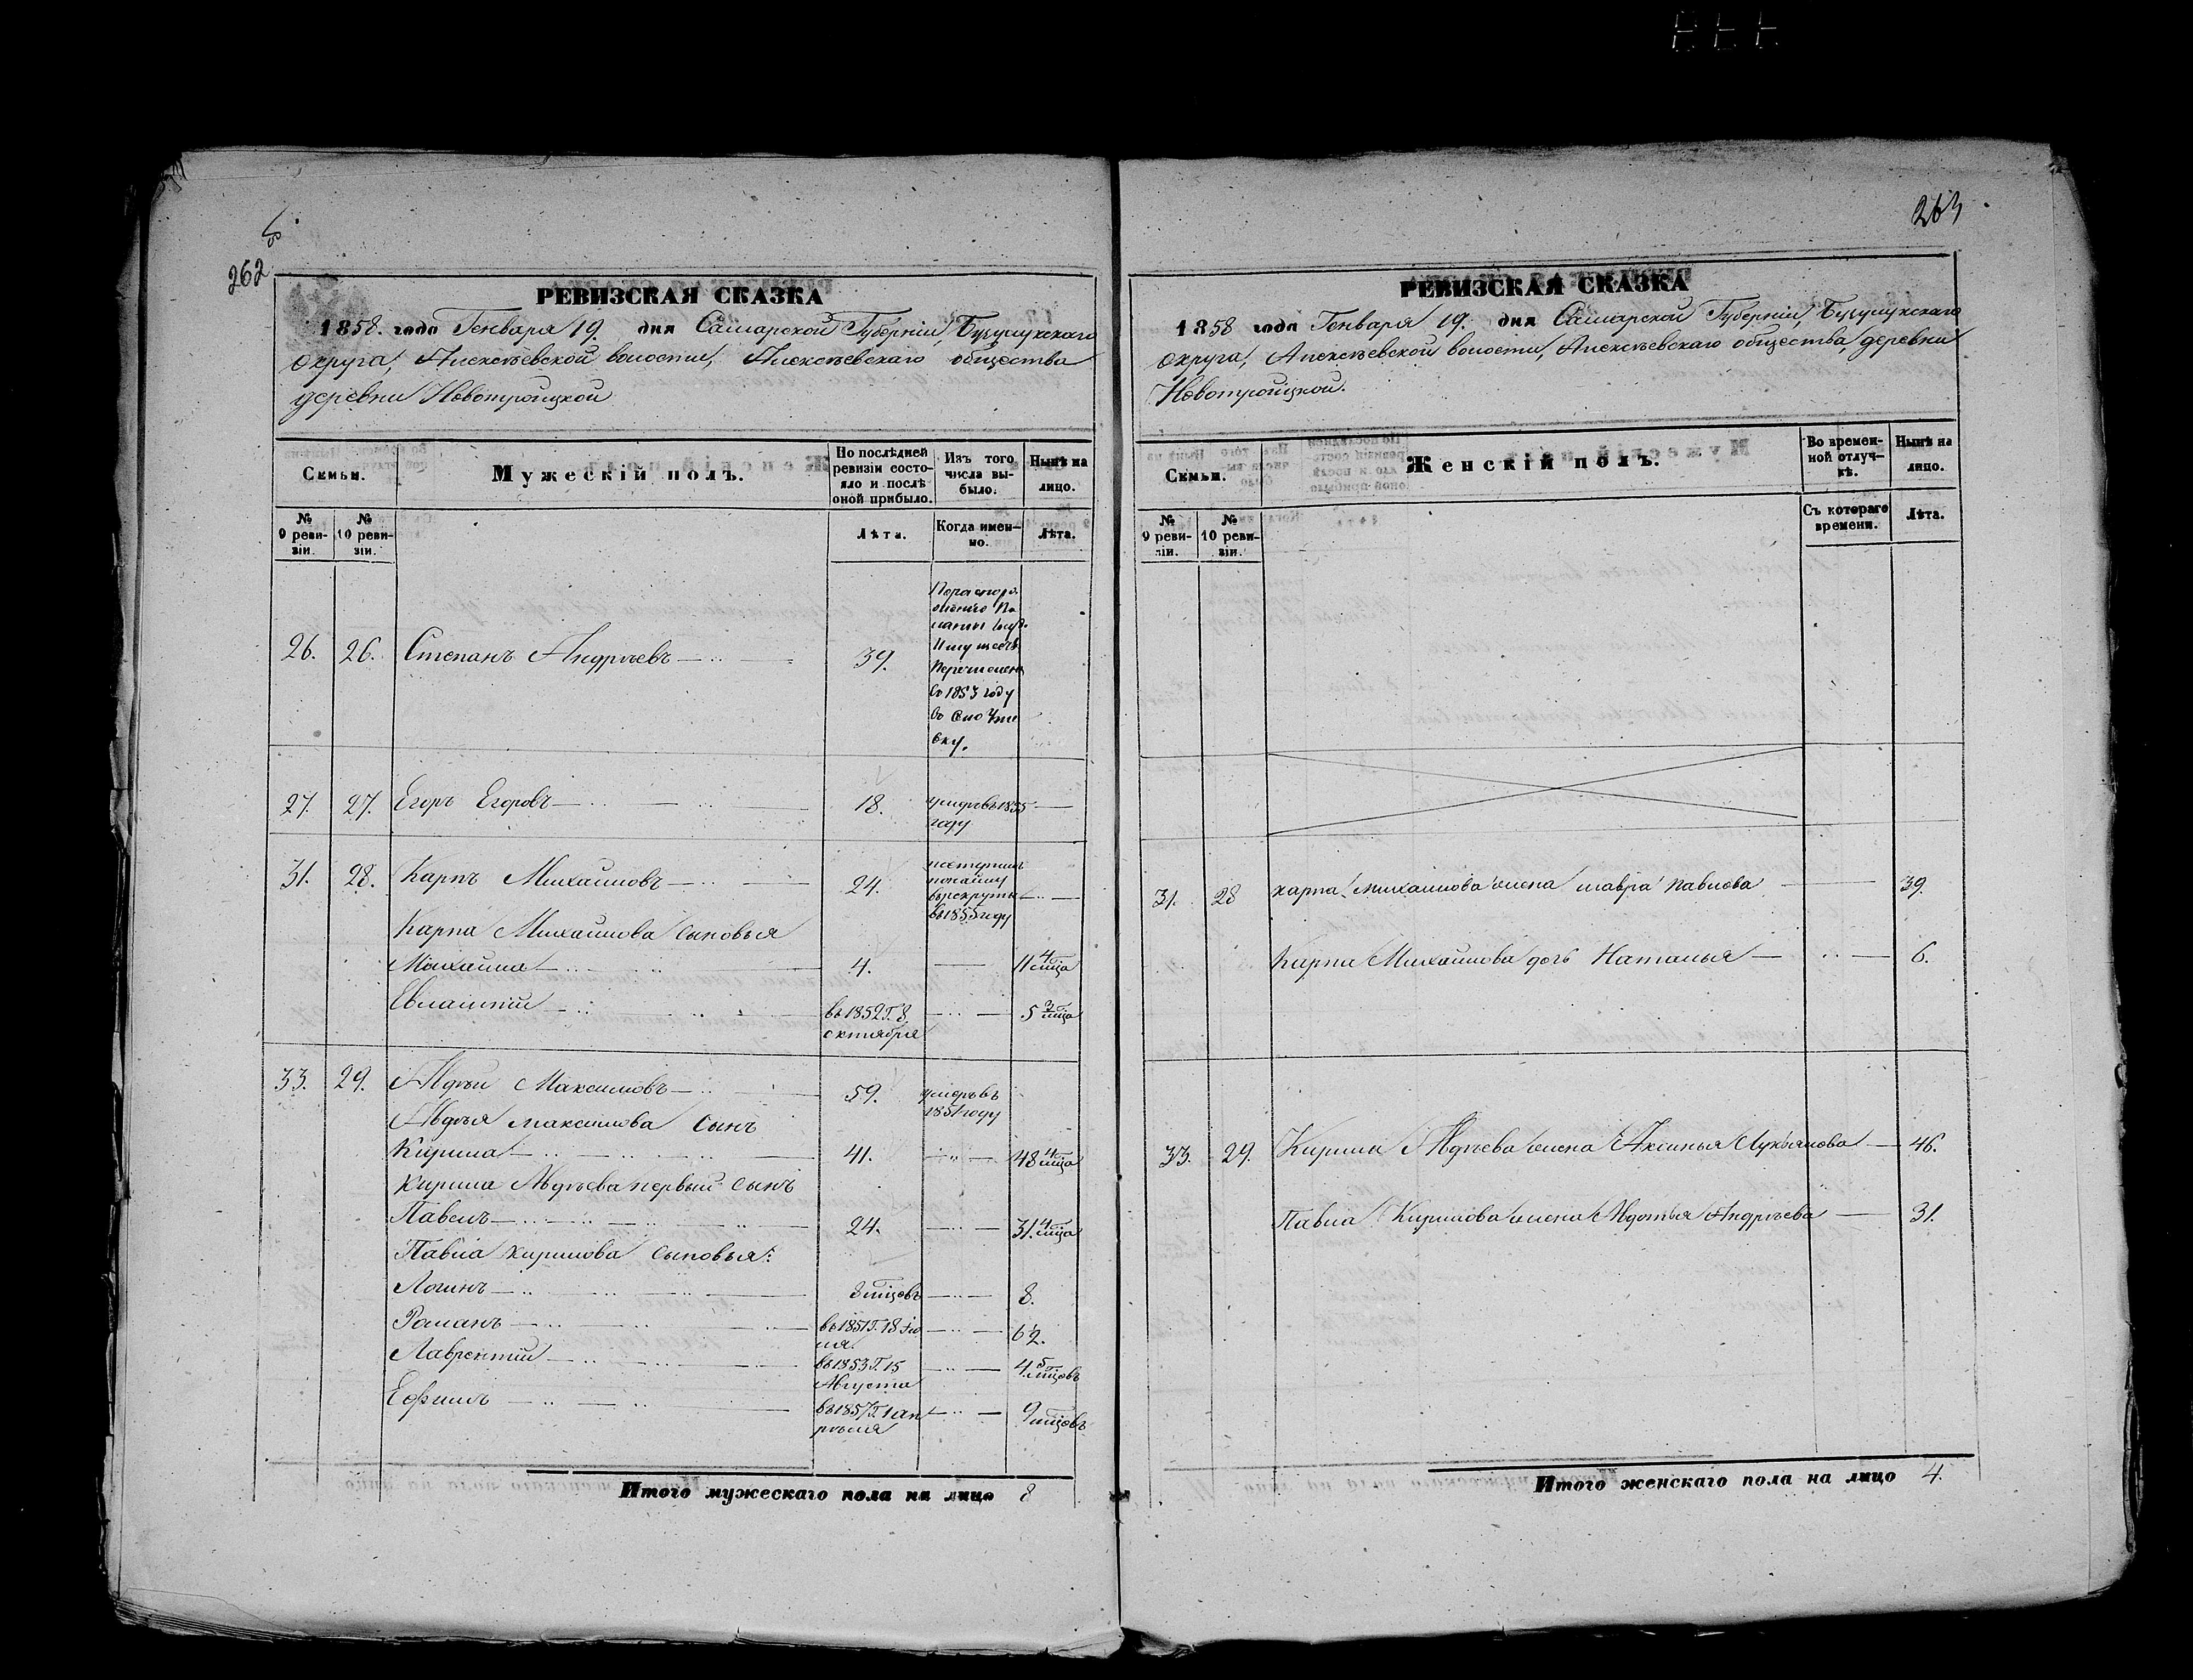 262
РЕВИЗСКАЯ СКАЗКА
1858. года Генваря 19. дня Самарской Губерніи, Бузулукскаго
округа, Алексѣевской волости, Алексѣевскаго общества
деревни Новотроицкой
Семьи.
Мужескій полъ.
По послѣдней ревизіи состояло и послѣ оной прибыло.
Изъ того числа выбыло.
Нынѣ на лицо.
№ 9 ревизіи.
№ 10 ревизіи.
Лѣта.
Когда именно.
Лѣта.
26. 26. Степанъ Андрѣевъ 39.
Перечислена
въ 1853 году
27. 27. Егоръ Егоровъ 18. умеръ въ 1855
году
31. 28. Карпъ Михаиловъ 24. поступилъ
въ рекруты
въ 1855 году
Карпа Михаилова сыновья
Михаила 4. 11 4/мца
Евлампій въ 1852 г. 8 октября 5 3/мца
33. 29. Авдѣй Максимовъ 59. умеръ въ
1851 году
Авдѣя Максимова сынъ
Кирила 41. 48 4/мца
Кирила Авдѣева первый сынъ
Павелъ 24. 31. 4/мца
Павла Кирилова сыновья:
Логинъ 8 мцовъ 8.
Романъ въ 1851 г. 18 Іюля 6 1/2.
Лаврентій въ 1853 г. 15 Августа 4. 5/мцовъ
Ефимъ въ 1857 г. 1 апрѣля 9 мцовъ
Итого мужескаго пола на лицо 8
263
РЕВИЗСКАЯ СКАЗКА
1858 года Генваря 19. дня Самарской Губерніи, Бузулукскаго
округа, Алексѣевской волости, Алексѣевскаго общества, деревни
Новотройцкой.
Семьи.
Женскій полъ.
Во временной отлучкѣ.
Нынѣ на лицо.
№ 9 ревизіи.
№ 10 ревизіи.
Съ котораго времени.
Лѣта.
31. 28 карпа Михаилова жена мавра Павлова 39.
Карпа Михаилова дочь Наталья 6.
33. 29. Кирила Авдѣева жена Аксинья Лукьянова 46.
Павла Кирилова жена Авдотья Андрѣева 31.
Итого женскаго пола на лицо 4.